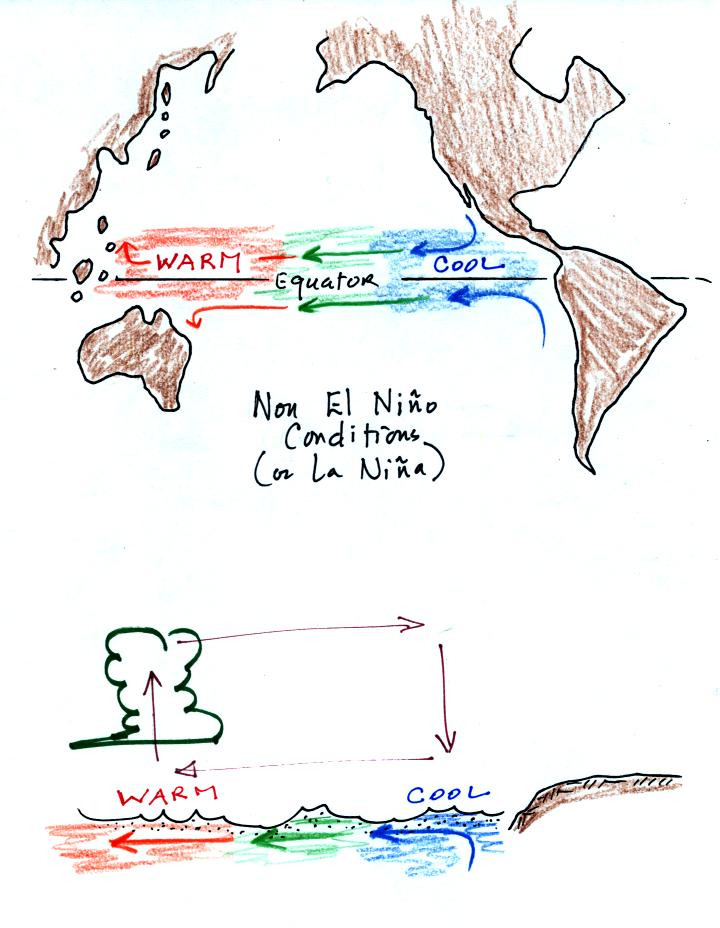 WARM
COOL
Equator
Non El Niño
Conditions
(or La Niña)
WARM
COOL